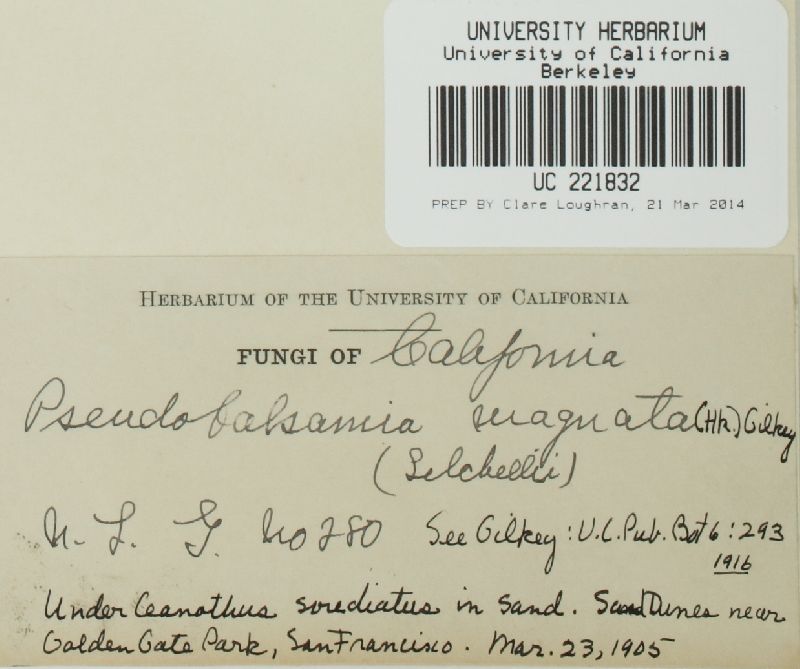 UNIVERSITY HERBARIUM
University of California
Berkeley
UC 221832
PREP BY Clare Loughran, 21 Mar 2014
HERBARIUM OF THE UNIVERSITY OF CALIFORNIA
FUNGI OF California
Pseudobalsamia magnata (Hk.) Gilkey
(Setchellii)
N. L. G. No 280 See Gilkey: U.C. Pub. Bot 6: 293
1916
Under Ceanothus sorediatus in sand. Sand Dunes near
Golden Gate Park, San Francisco. Mar. 23, 1905